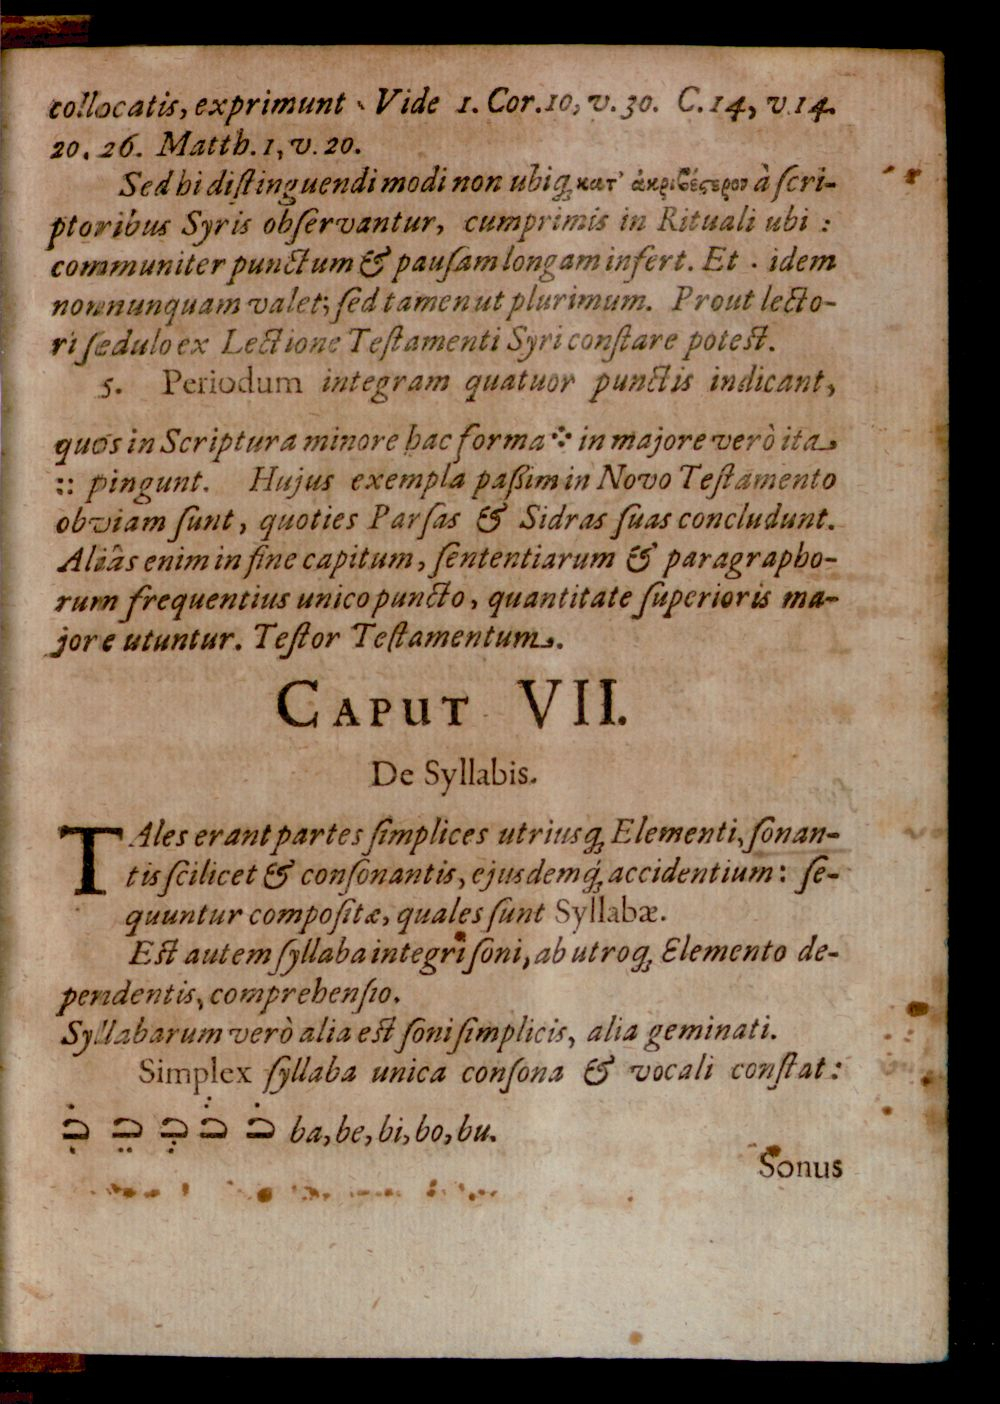 collocatis, exprimunt · Vide 1. Cor. 10, v. 30. C. 14, v. 14.
20. 26. Matth. 1, v. 20.
Sed hi diſtinguendi modi non ubiq; κατ' ἀκριβέςερον à ſcri-
ptoribus Syris obſervantur, cumprimis in Rituali ubi :
communiter punctum & pauſam longam infert. Et . idem
nonnunquam valet; ſed tamen ut plurimum. Prout lecto-
ri ſedulo ex Lectione Teſtamenti Syri conſtare poteſt.
5. Periodum integram quatuor punctis indicant,
quos in Scriptura minore hac forma ܀ in majore verò ita
:: pingunt. Hujus exempla paßim in Novo Teſtamento
obviam ſunt, quoties Parſas & Sidras ſuas concludunt.
Aliâs enim in fine capitum, ſententiarum & paragrapho-
rum frequentius unico puncto, quantitate ſuperioris ma-
jore utuntur. Teſtor Teſtamentum.
CAPUT VII.
De Syllabis.
TAles erant partes ſimplices utriusq; Elementi, ſonan-
tis ſcilicet & conſonantis, ejusdemq́; accidentium: ſe-
quuntur compoſitæ, quales ſunt Syllabæ.
Eſt autem ſyllaba integri ſoni, ab utroq; Elemento de-
pendentis, comprehenſio.
Syllabarum verò alia eſt ſoni ſimplicis, alia geminati.
Simplex ſyllaba unica conſona & vocali conſtat:
ba, be, bi, bo, bu.
Sonus